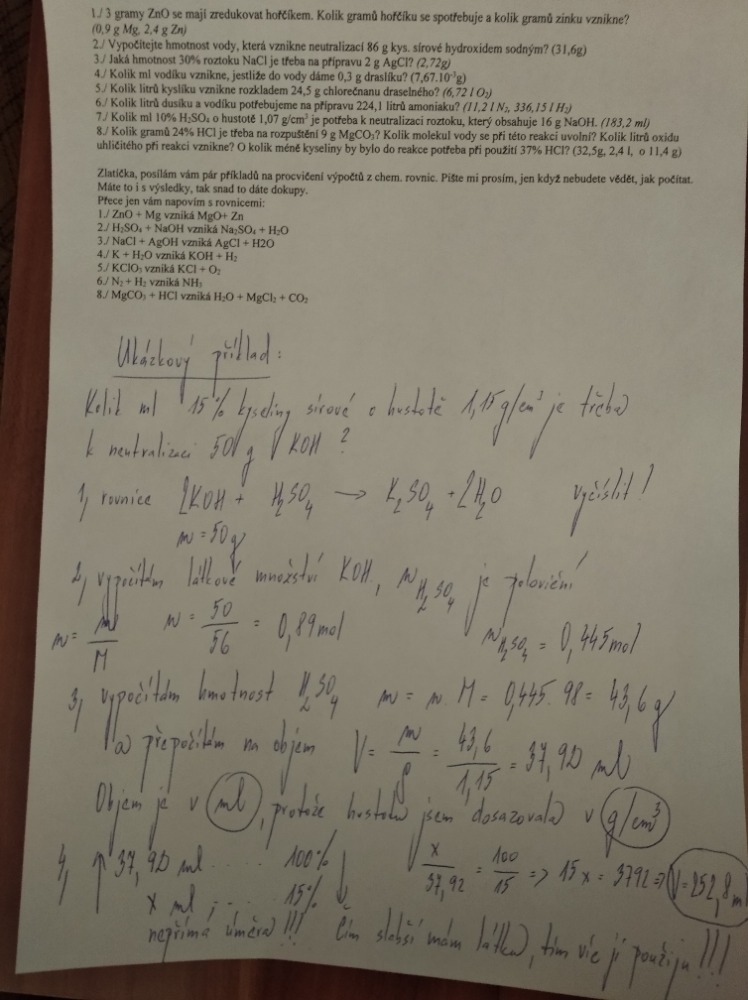 1./ 3 gramy ZnO se mají zredukovat hořčíkem. Kolik gramů hořčíku se spotřebuje a kolik gramů zinku vznikne?
(0,9 g Mg, 2,4 g Zn)
2./ Vypočítejte hmotnost vody, která vznikne neutralizací 86 g kys. sírové hydroxidem sodným? (31,6g)
3./ Jaká hmotnost 30% roztoku NaCl je třeba na přípravu 2 g AgCl? (2,72g)
4./ Kolik ml vodíku vznikne, jestliže do vody dáme 0,3 g draslíku? (7,67.10⁻³g)
5./ Kolik litrů kyslíku vznikne rozkladem 24,5 g chlorečnanu draselného? (6,72 l O₂)
6./ Kolik litrů dusíku a vodíku potřebujeme na přípravu 224,1 litrů amoniaku? (11,2 l N₂, 336,15 l H₂)
7./ Kolik ml 10% H₂SO₄ o hustotě 1,07 g/cm³ je potřeba k neutralizaci roztoku, který obsahuje 16 g NaOH. (183,2 ml)
8./ Kolik gramů 24% HCl je třeba na rozpuštění 9 g MgCO₃? Kolik molekul vody se při této reakci uvolní? Kolik litrů oxidu
uhličitého při reakci vznikne? O kolik méně kyseliny by bylo do reakce potřeba při použití 37% HCl? (32,5g, 2,4 l, o 11,4 g)
Zlatíčka, posílám vám pár příkladů na procvičení výpočtů z chem. rovnic. Pište mi prosím, jen když nebudete vědět, jak počítat.
Máte to i s výsledky, tak snad to dáte dokupy.
Přece jen vám napovím s rovnicemi:
1./ ZnO + Mg vzniká MgO+ Zn
2./ H₂SO₄ + NaOH vzniká Na₂SO₄ + H₂O
3./ NaCl + AgOH vzniká AgCl + H2O
4./ K + H₂O vzniká KOH + H₂
5./ KClO₃ vzniká KCl + O₂
6./ N₂ + H₂ vzniká NH₃
8./ MgCO₃ + HCl vzniká H₂O + MgCl₂ + CO₂
Ukázkový příklad:
Kolik ml 15% kyseliny sírové o hustotě 1,15 g/cm³ je třeba
k neutralizaci 50 g KOH ?
1, rovnice 2KOH + H₂SO₄ → K₂SO₄ + 2H₂O vyčíslit!
m = 50g
2, vypočítám látkové množství KOH, n H₂SO₄ je poloviční
n = m/M n = 50/56 = 0,89 mol n H₂SO₄ = 0,445 mol
3, vypočítám hmotnost H₂SO₄ m = n. M = 0,445. 98 = 43,6 g
a přepočítám na objem V = m/ρ = 43,6/1,15 = 37,92 ml
Objem je v ml, protože hustotu jsem dosazovala v g/cm³
4, ↑ 37,92 ml ..... 100% ↓ x/37,92 = 100/15 => 15 x = 3792 => V = 252,8 ml
x ml ; .... 15%
nepřímá úměra !!! Čím slabší mám látku, tím víc jí použiju !!!